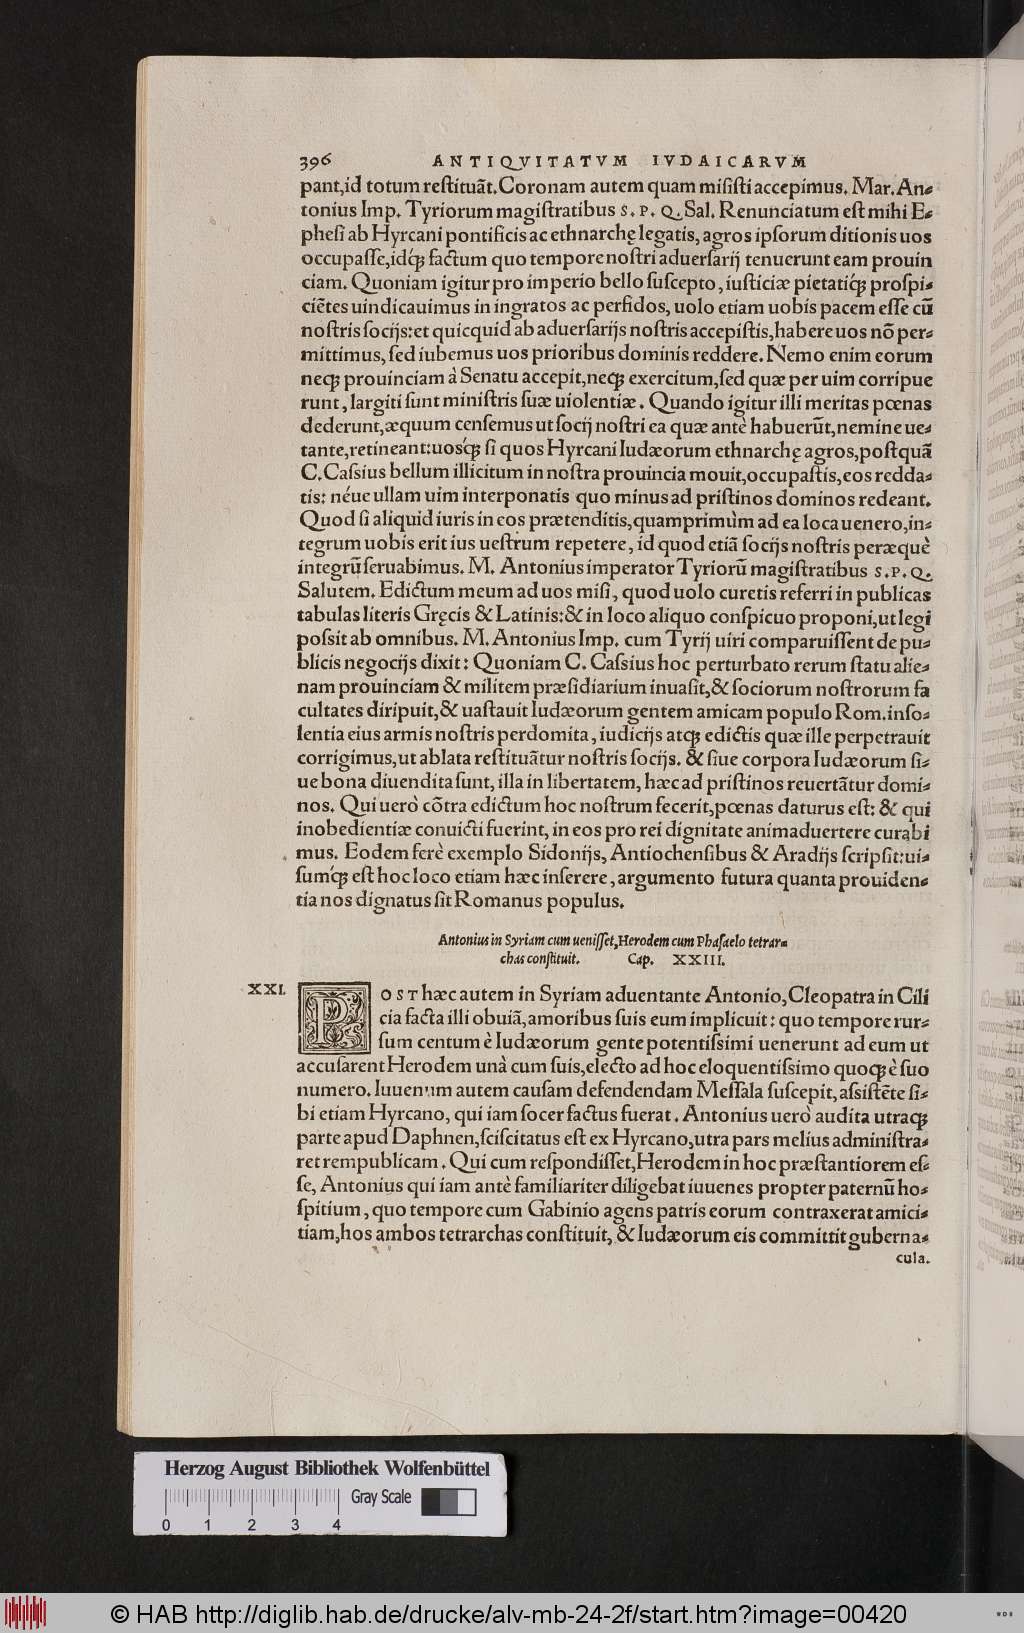 396 ANTIQVITATVM IVDAICARVM
pant,id totum reſtituãt.Coronam autem quam miſiſti accepimus. Mar. An-
tonius Imp. Tyriorum magiſtratibus S. P. Q. Sal. Renunciatum eſt mihi E-
pheſi ab Hyrcani pontificis ac ethnarchę legatis, agros ipſorum ditionis uos
occupaſſe,idq́; factum quo tempore noſtri aduerſarij tenuerunt eam prouin
ciam. Quoniam igitur pro imperio bello ſuſcepto, iuſticiæ pietatiq́; proſpi-
ciẽtes uindicauimus in ingratos ac perfidos, uolo etiam uobis pacem eſſe cũ
noſtris ſocijs:et quicquid ab aduerſarijs noſtris accepiſtis,habere uos nõ per-
mittimus, ſed iubemus uos prioribus dominis reddere. Nemo enim eorum
neq; prouinciam à Senatu accepit,neq; exercitum,ſed quæ per uim corripue
runt, largiti ſunt miniſtris ſuæ uiolentiæ. Quando igitur illi meritas pœnas
dederunt,æquum cenſemus ut ſocij noſtri ea quæ antè habuerũt,nemine ue-
tante,retineant:uosq́; ſi quos Hyrcani Iudæorum ethnarchę agros,poſtquã
C. Caſsius bellum illicitum in noſtra prouincia mouit,occupaſtis,eos redda-
tis: néue ullam uim interponatis quo minus ad priſtinos dominos redeant.
Quod ſi aliquid iuris in eos prætenditis,quamprimùm ad ea loca uenero,in-
tegrum uobis erit ius ueſtrum repetere, id quod etiã ſocijs noſtris peræquè
integrũ ſeruabimus. M. Antonius imperator Tyriorũ magiſtratibus S. P. Q.
Salutem. Edictum meum ad uos miſi, quod uolo curetis referri in publicas
tabulas literis Gręcis & Latinis:& in loco aliquo conſpicuo proponi,ut legi
poſsit ab omnibus. M. Antonius Imp. cum Tyrij uiri comparuiſſent de pu-
blicis negocijs dixit: Quoniam C. Caſsius hoc perturbato rerum ſtatu alie-
nam prouinciam & militem præſidiarium inuaſit,& ſociorum noſtrorum fa
cultates diripuit,& uaſtauit Iudæorum gentem amicam populo Rom.inſo-
lentia eius armis noſtris perdomita, iudicijs atq; edictis quæ ille perpetrauit
corrigimus,ut ablata reſtituãtur noſtris ſocijs. & ſiue corpora Iudæorum ſi-
ue bona diuendita ſunt, illa in libertatem, hæc ad priſtinos reuertãtur domi-
nos. Qui uerò cõtra edictum hoc noſtrum fecerit,pœnas daturus eſt: & qui
inobedientiæ conuicti fuerint, in eos pro rei dignitate animaduertere curabi
mus. Eodem ferè exemplo Sidonijs, Antiochenſibus & Aradijs ſcripſit:ui-
ſumq́; eſt hoc loco etiam hæc inſerere, argumento futura quanta prouiden-
tia nos dignatus ſit Romanus populus.
Antonius in Syriam cum ueniſſet,Herodem cum Phaſaelo tetrar-
chas conſtituit. Cap. XXIII.
XXI. POST hæc autem in Syriam aduentante Antonio,Cleopatra in Cili
cia facta illi obuiã,amoribus ſuis eum implicuit: quo tempore rur-
ſum centum è Iudæorum gente potentiſsimi uenerunt ad eum ut
accuſarent Herodem unà cum ſuis,electo ad hoc eloquentiſsimo quoq; è ſuo
numero. Iuuenum autem cauſam defendendam Meſſala ſuſcepit,aſsiſtẽte ſi-
bi etiam Hyrcano, qui iam ſocer factus fuerat. Antonius uerò audita utraq;
parte apud Daphnen,ſciſcitatus eſt ex Hyrcano,utra pars melius adminiſtra-
ret rempublicam. Qui cum reſpondiſſet,Herodem in hoc præſtantiorem eſ-
ſe, Antonius qui iam antè familiariter diligebat iuuenes propter paternũ ho-
ſpitium, quo tempore cum Gabinio agens patris eorum contraxerat amici-
tiam,hos ambos tetrarchas conſtituit, & Iudæorum eis committit guberna-
cula.
Herzog August Bibliothek Wolfenbüttel
Gray Scale
0 1 2 3 4
© HAB http://diglib.hab.de/drucke/alv-mb-24-2f/start.htm?image=00420